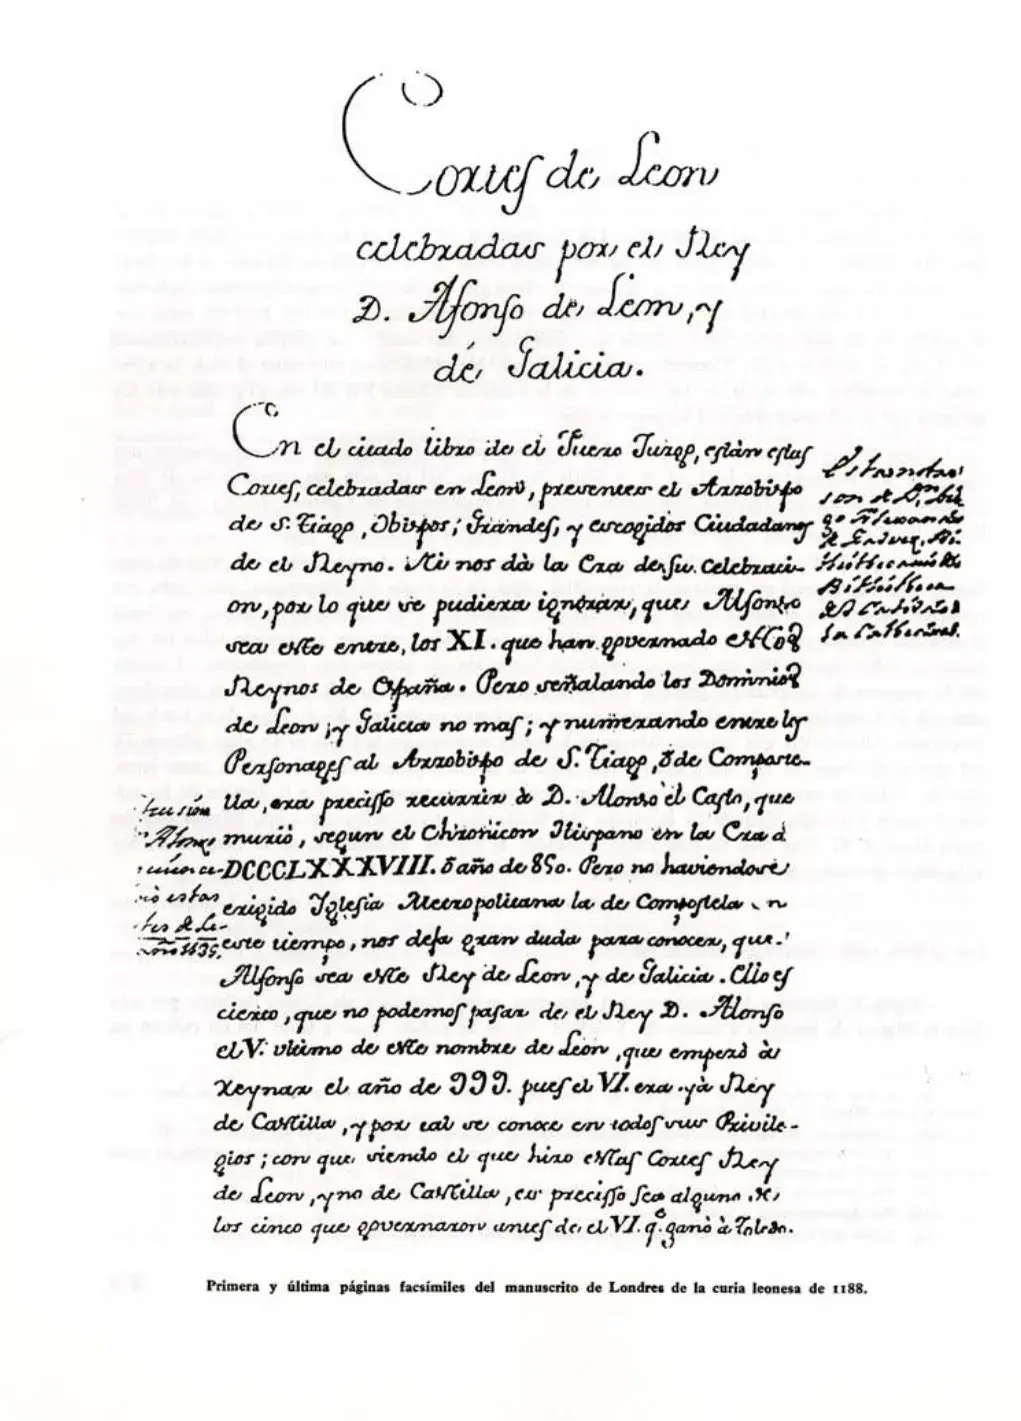 Cortes de Leon
celebradas por el Rey
D. Alfonso de Leon, y
de Galicia.
En el citado libro de el Fuero Juzgo, estàn estas
Cortes, celebradas en Leon, presentes el Arzobispo
de S. Tiago, Obispos, Grandes, y escogidos Ciudadanos
de el Reyno. Ni nos dà la Era de su celebraci-
on, por lo que se pudiera ignorar, que Alfonso
sea este entre, los XI. que han governado estos
Reynos de España. Pero señalando los Dominios
de Leon, y Galicia no mas; y numerando entre los
Personages al Arzobispo de S. Tiago, ò de Compste-
lla, era precisso recurrir à D. Alonso èl Casto, que
murió, segun el Chronicon Hispano en la Era d
DCCCLXXXVIII. ò año de 850. Pero no haviendose
erigido Iglesia Metropolitana la de Compostela n
este tiempo, nos deja gran duda para conocer, que
Alfonso sea este Rey de Leon, y de Galicia. Ello es
cierto, que no podemos pasar de el Rey D. Alonso
el V. ultimo de este nombre de Leon, que empezò à
reynar el año de 999. pues el VI. era yà Rey
de Castilla, y por tal se conoce en todos sus Privile-
gios; con que siendo el que hizo estas Cortes Rey
de Leon, y no de Castilla, es precisso sea alguno de
los cinco que governaron antes de el VI. q.e ganò à Toledo.
Estas notas
son de D.n
de Galvez, Bi-
bliothecario de
Bibliotheca
la Cathedral.
Alfonso
estas
tes de Le-
año 1635.
Primera y última páginas facsímiles del manuscrito de Londres de la curia leonesa de 1188.